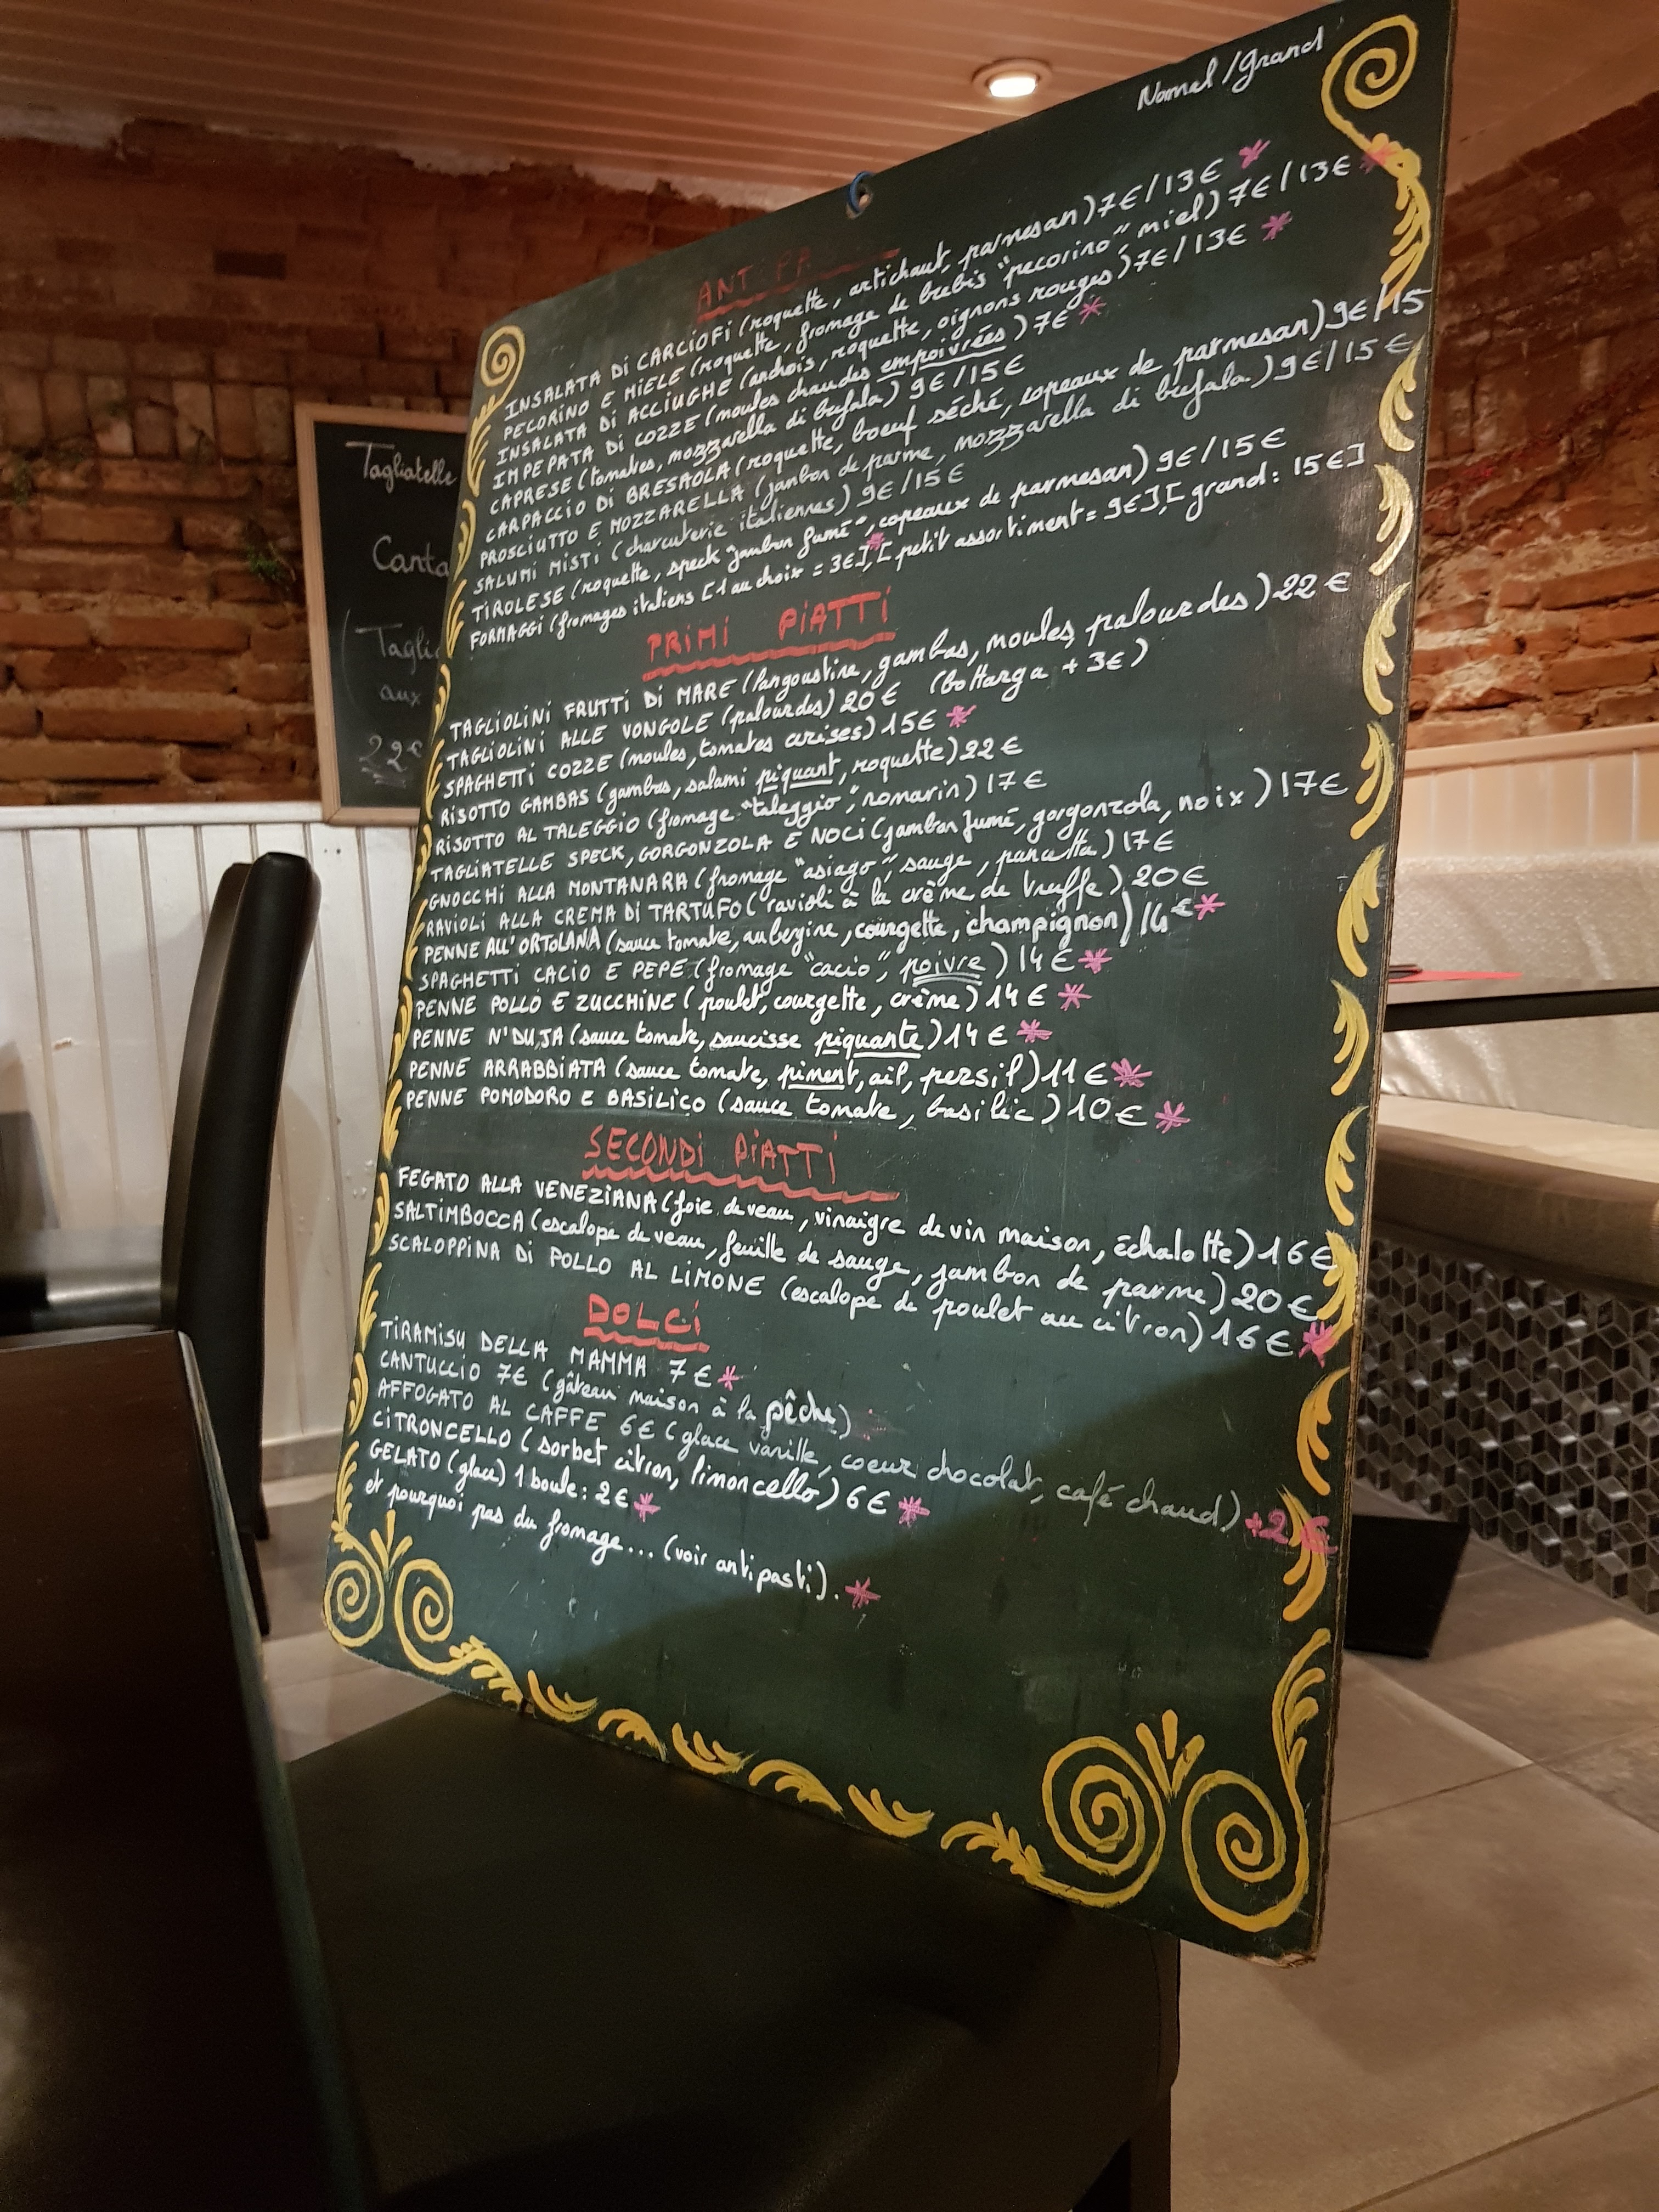 Normal/grand
ANTIPA
INSALATA Di CARCIOFI (roquette, artichaut, parmesan) 7€/13€ *
PECORINO E MIELE (roquette, fromage de brebis "pecorino" miel) 7€/13€ *
INSALATA DI ACCIUGHE (anchois, roquette, oignons rouges) 7€/13€ *
IMPEPATA DI COZZE (moules chaudes empoivrées) 7€ *
CAPRESE (tomates, mozzarella di bufala) 9€/15€
CARPACCIO DI BRESAOLA (roquette, boeuf séché, copeaux de parmesan) 9€/15
PROSCIUTTO E MOZZARELLA (jambon de parme, mozzarella di bufala) 9€/15€
SALUMI MISTI (charcuterie italiennes) 9€/15€
TIROLESE (roquette, speck "jambon fumé", copeaux de parmesan) 9€/15€
FORMAGGI (fromages italiens [1 au choix = 3€]*, [petit assortiment = 9€], [grand: 15€]
PRIMI PIATTI
TAGLIOLINI FRUTTI DI MARE (langoustine, gambas, moules, palourdes) 22€
TAGLIOLINI ALLE VONGOLE (palourdes) 20€ (bottarga + 3€)
SPAGHETTI COZZE (moules, tomates cerises) 15€ *
RISOTTO GAMBAS (gambas, salami piquant, roquette) 22€
RISOTTO AL TALEGGIO (fromage "taleggio", romarin) 17€
TAGLIATELLE SPECK, GORGONZOLA E NOCI (jambon fumé, gorgonzola, noix) 17€
GNOCCHI ALLA MONTANARA (fromage "asiago", sauge, pancetta) 17€
RAVIOLI ALLA CREMA DI TARTUFO (ravioli à la crème de truffe) 20€
PENNE ALL'ORTOLANA (sauce tomate, aubergine, courgette, champignon) 14€ *
SPAGHETTI CACIO E PEPE (fromage "cacio", poivre) 14€ *
PENNE POLLO E ZUCCHINE (poulet, courgette, crème) 14€ *
PENNE N'DUJA (sauce tomate, saucisse piquante) 14€ *
PENNE ARRABBIATA (sauce tomate, piment, ail, persil) 11€ *
PENNE POMODORO E BASILICO (sauce tomate, basilic) 10€ *
SECONDI PIATTI
FEGATO ALLA VENEZIANA (foie de veau, vinaigre de vin maison, échalotte) 16€
SALTIMBOCCA (escalope de veau, feuille de sauge, jambon de parme) 20€
SCALOPPINA DI POLLO AL LIMONE (escalope de poulet au citron) 16€ *
DOLCI
TIRAMISU DELLA MAMMA 7€ *
CANTUCCIO 7€ (gâteau maison à la pêche)
AFFOGATO AL CAFFE 6€ (glace vanille, coeur chocolat, café chaud) +2€
CITRONCELLO (sorbet citron, limoncello) 6€ *
GELATO (glace) 1 boule: 2€ *
et pourquoi pas du fromage... (voir antipasti). *
Tagliatelle
Canta
(Tagli
aux
22€